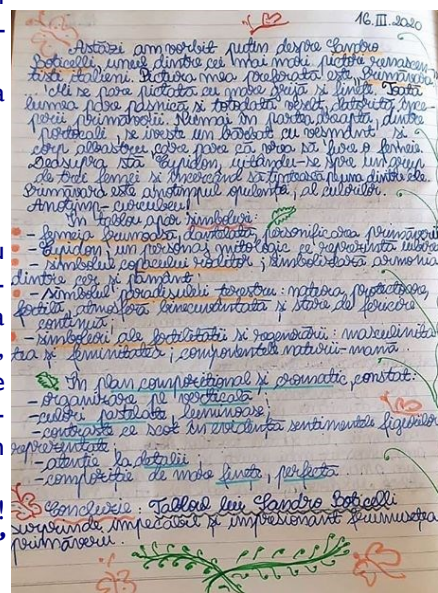 16. III. 2020
Astăzi am vorbit puțin despre Sandro
Boticelli, unul dintre cei mai mari pictori renascen-
tiști italieni. Pictura mea preferată este „Primăvara”
Mi se pare pictată cu mare grijă și finețe. Toată
lumea pare pașnică și totodată veselă, datorită înce-
perii primăverii. Numai în partea dreaptă, dintre
portocali, se ivește un bărbat cu veșmânt și
corp albastrui, care pare că vrea să fure o femeie.
Deasupra stă Cupidon, uitându-se spre un grup
de trei femei și încercând să țintească pe una dintre ele.
Primăvara este anotimpul opulenței, al culorilor.
Anotimp-curcubeu!
În tablou apar simboluri:
- femeia frumoasă, personificarea primăverii
- Cupidon, un personaj mitologic ce reprezintă iubirea
- simbolul copacului roditor; simbolizează armonia
dintre cer și pământ;
- simbolul paradisului terestru: natura, protectoare,
fertilă, atmosferă binecuvântată și stare de fericire
continuă;
- simboluri ale fertilității și regenerării: masculinita-
tea și feminitatea, componentele naturii-mamă.
În plan compozițional și cromatic, constat:
- organizare pe verticală;
- culori pastelate, luminoase;
- contraste ce scot în evidență sentimentele figurilor
reprezentate;
- atenție la detalii
- compoziție de mare finețe, perfectă
Concluzie: Tabloul lui Sandro Boticelli
surprinde impecabil și impresionant frumusețea
primăverii.